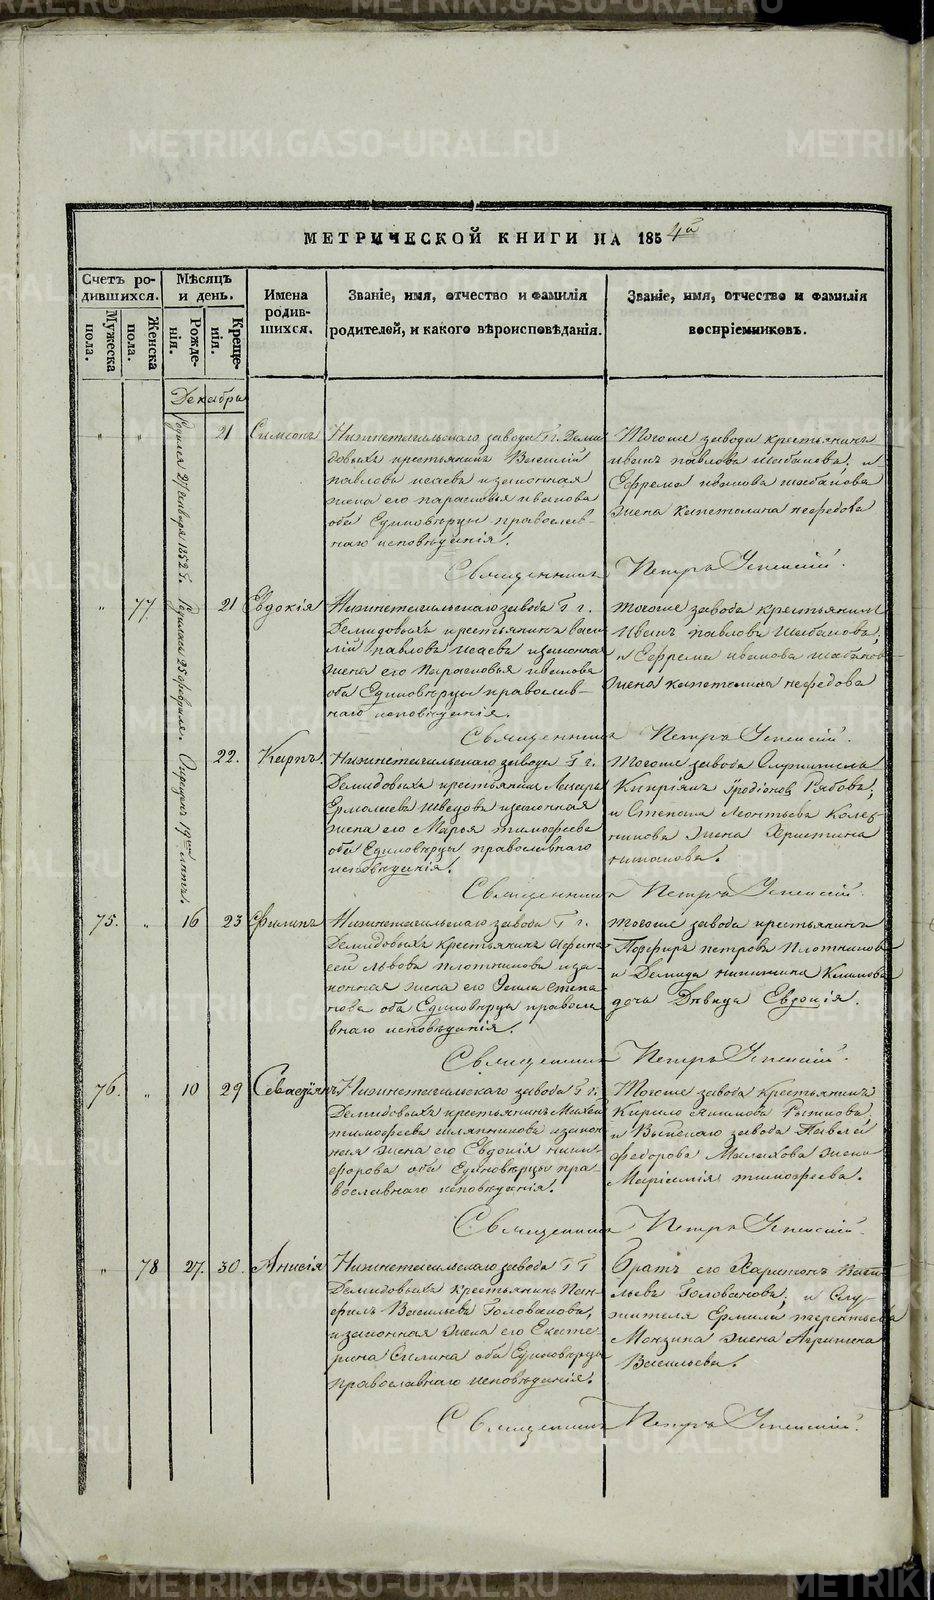 МЕТРИЧЕСКОЙ КНИГИ НА 1854й
Счетъ родившихся.
Мужеска пола.
Женска пола.
Мѣсяцъ и день.
Рожденія.
Крещенія.
Имена родившихся.
Званіе, имя, отчество и фамилія
родителей, и какого вѣроисповѣданія.
Званіе, имя, отчество и фамилія
воспріемниковъ.
Декабрь
Родился 27 января 1852 г.
21
Симеонъ
Нижнетагильскаго завода Г. г. Деми
довыхъ крестьянинъ Василій
павловъ исаевъ и законная
жена его парасковья иванова
оба Единовѣрцы православ-
наго исповѣданія.
Тогоже завода крестьянинъ
иванъ павловъ шабановъ, и
Ефрема иванова шабанова
жена капетолина нефедова
Священникъ Петръ Успенскій.
77.
Родилась 25 февраля.
21
Евдокія
Нижнетагильскаго завода Г. г.
Демидовыхъ крестьянинъ Васи
лій павловъ исаевъ и законная
жена его Парасковья иванова
оба Единовѣрцы православ-
наго исповѣданія.
Тогоже завода крестьянинъ
Иванъ павловъ шабановъ,
и Ефрема иванова шабанов
жена капетолина нефедова
Священникъ Петръ Успенскій.
22.
Карпъ.
Нижнетагильскаго завода Г. г.
Демидовыхъ крестьянинъ Лазарь
Ермолаевъ Шведовъ и законная
жена его Марья тимофеева
оба Единовѣрцы православнаго
исповѣданія.
Тогоже завода
Кипріянъ Родіоновъ Рябовъ,
и Степана Леонтьева
жена Христина
Священникъ Петръ Успенскій.
75.
16
23
Филипъ
Нижнетагильскаго завода Г. г.
Демидовыхъ крестьянинъ Афана
сей Львовъ плотниковъ и за-
конная жена его Степа
нова оба Единовѣрцы правосла
внаго исповѣданія.
Тогоже завода крестьянинъ
Порфиръ петровъ Плотниковъ
и Демида Климова
дочь Дѣвица Евдокія.
Священникъ Петръ Успенскій.
76.
10
29
Севастіянъ
Нижнетагильскаго завода Г. г.
Демидовыхъ крестьянинъ Михей
тимофеевъ шляпниковъ и закон
ная жена его Евдокія ники-
форова оба Единовѣрцы пра-
вославнаго исповѣданія.
Тогоже завода крестьянинъ
Кирило Рыжковъ,
и Выйскаго завода Павла
федорова Малахова жена
тимофеева.
Священникъ Петръ Успенскій.
78
27.
30.
Анисія
Нижнетагильскаго завода Г. Г
Демидовыхъ крестьянинъ Пан-
филъ Васильевъ Головановъ,
и законная жена его Екате-
рина Силина оба Единовѣрцы
православнаго исповѣданія.
Братъ его Харитонъ Васи
льевъ Головановъ, и Слу-
жителя Ермила терентьева
Монзина жена Агрипина
Васильева.
Священникъ Петръ Успенскій.
METRIKI.GASO-URAL.RU